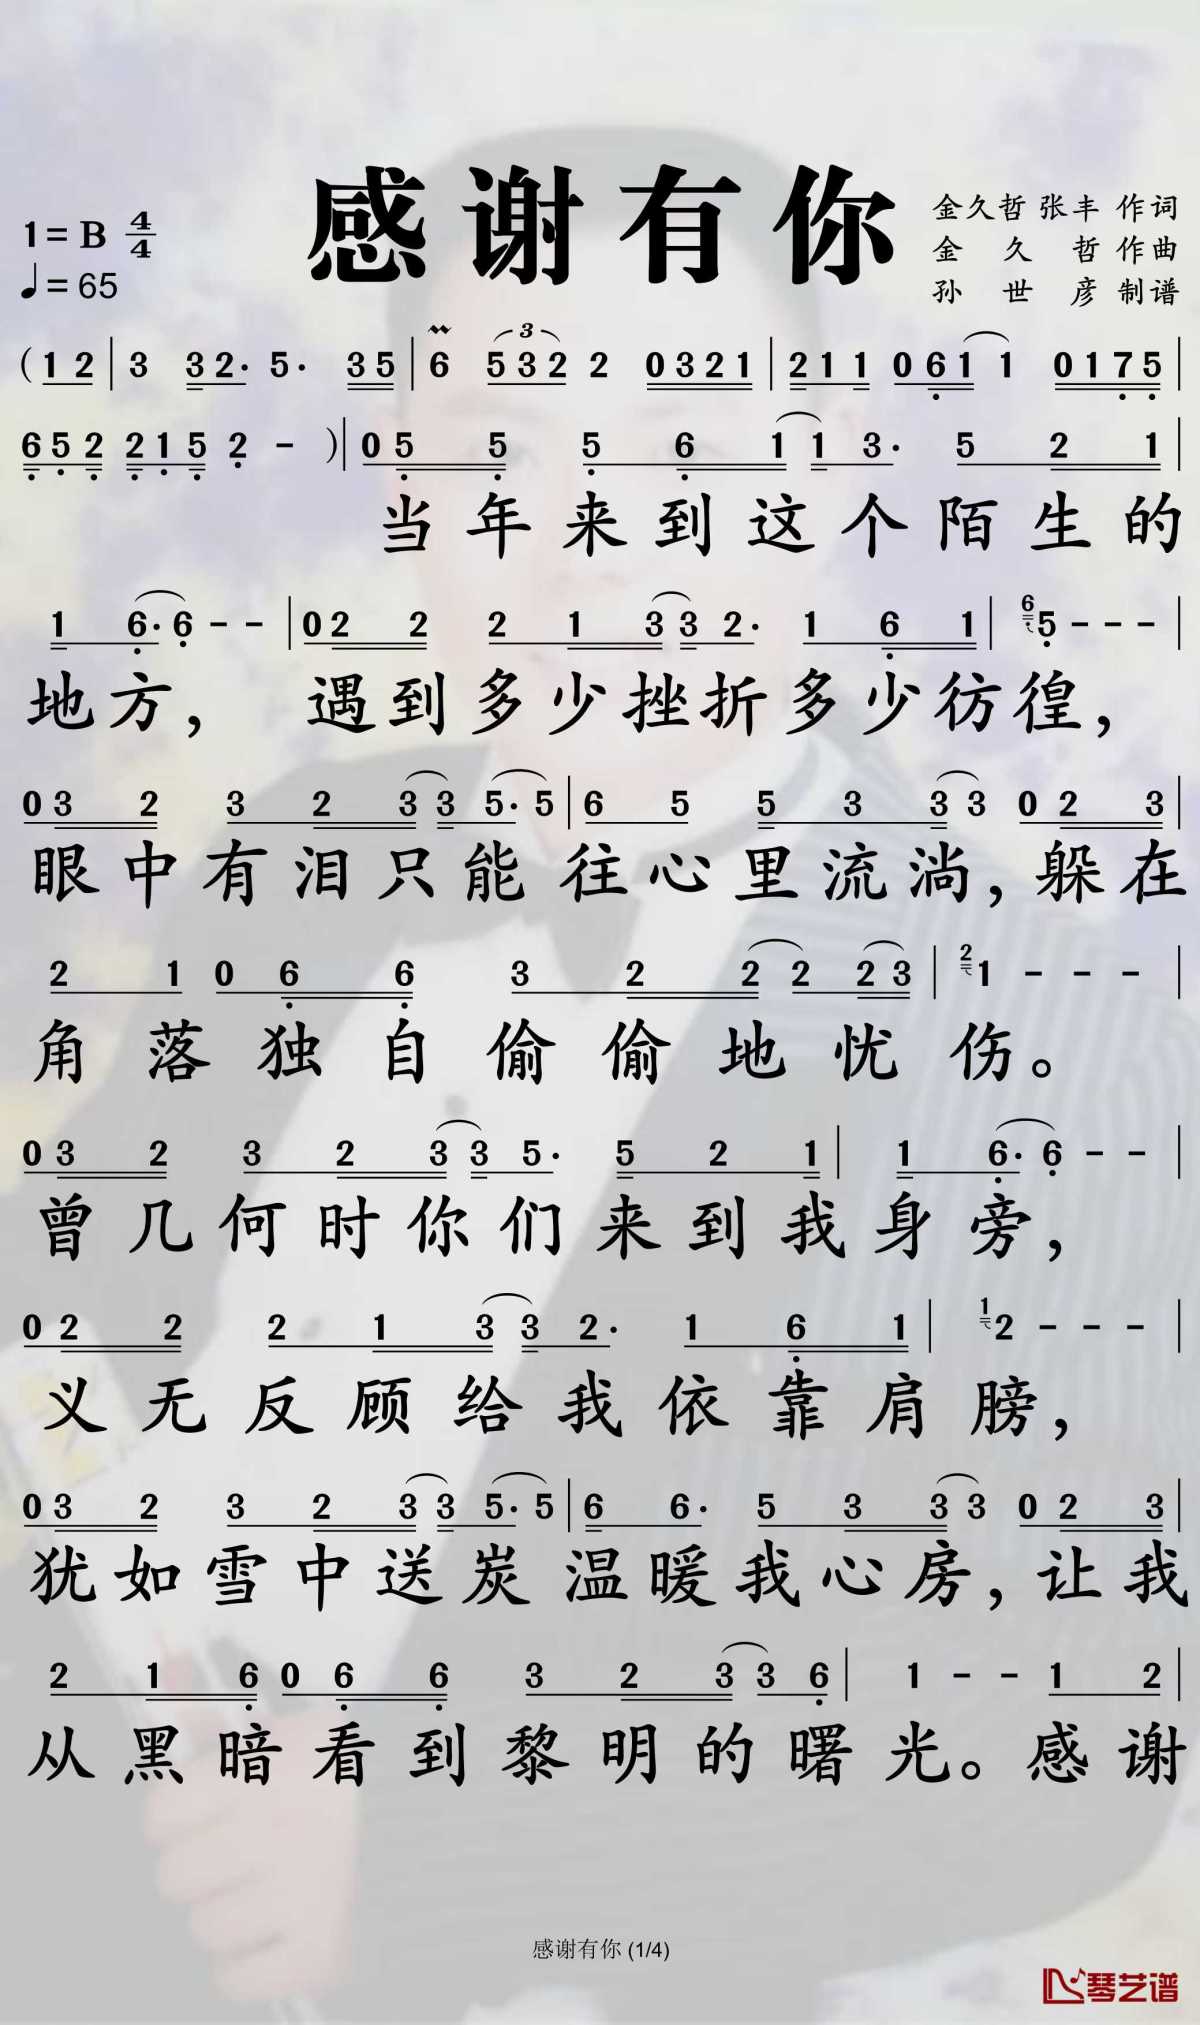 感谢有你
1=B 4/4
♩=65
金久哲 张丰 作词
金久哲 作曲
孙世彦 制谱
( 1 2 | 3 3 2· 5· 3 5 | 6 5 3 2 2 0 3 2 1 | 2 1 1 0 6 1 1 0 1 7 5 |
6 5 2 2 1 5 2 - ) | 0 5 5 5 6 1 1 3· 5 2 1 |
当年来到这个陌生的
1 6· 6 - - | 0 2 2 2 1 3 3 2· 1 6 1 | 6 5 - - - |
地方，遇到多少挫折多少彷徨，
0 3 2 3 2 3 3 5· 5 | 6 5 5 3 3 3 0 2 3 |
眼中有泪只能往心里流淌，躲在
2 1 0 6 6 3 2 2 2 2 3 | 2 1 - - - |
角落独自偷偷地忧伤。
0 3 2 3 2 3 3 5· 5 2 1 | 1 6· 6 - - |
曾几何时你们来到我身旁，
0 2 2 2 1 3 3 2· 1 6 1 | 1 2 - - - |
义无反顾给我依靠肩膀，
0 3 2 3 2 3 3 5· 5 | 6 6· 5 3 3 3 0 2 3 |
犹如雪中送炭温暖我心房，让我
2 1 6 0 6 6 3 2 3 3 6 | 1 - - 1 2 |
从黑暗看到黎明的曙光。感谢
感谢有你 (1/4)
琴艺谱